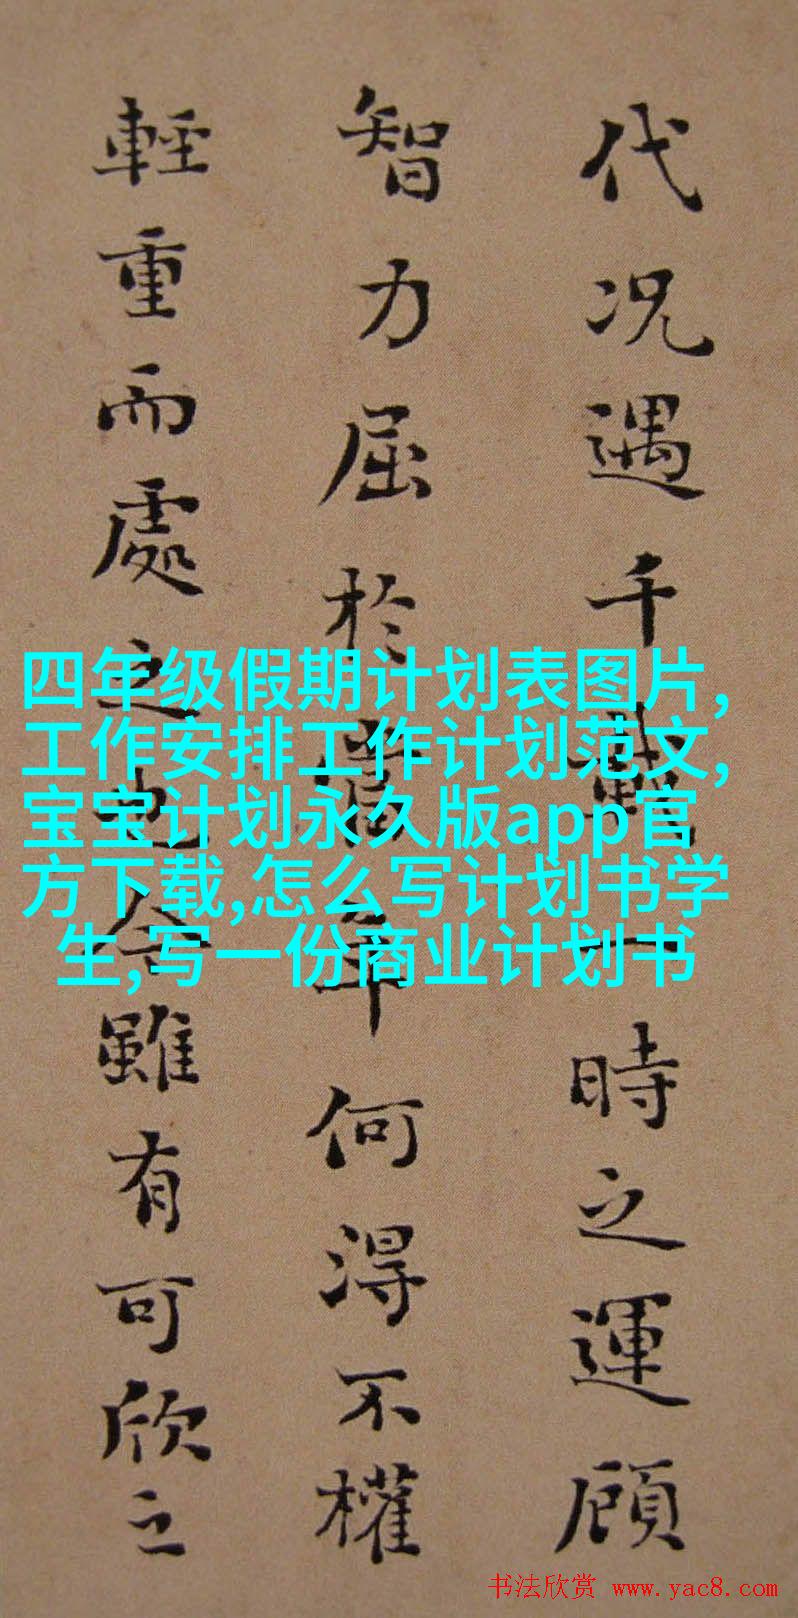 代况遇千載一時之運顧
智力屈於當年何得不權
輕重而處之也今雖有可欣之
四年级假期计划表图片,
工作安排工作计划范文,
宝宝计划永久版app官
方下载,怎么写计划书学
生,写一份商业计划书
书法欣赏 www.yac8.com